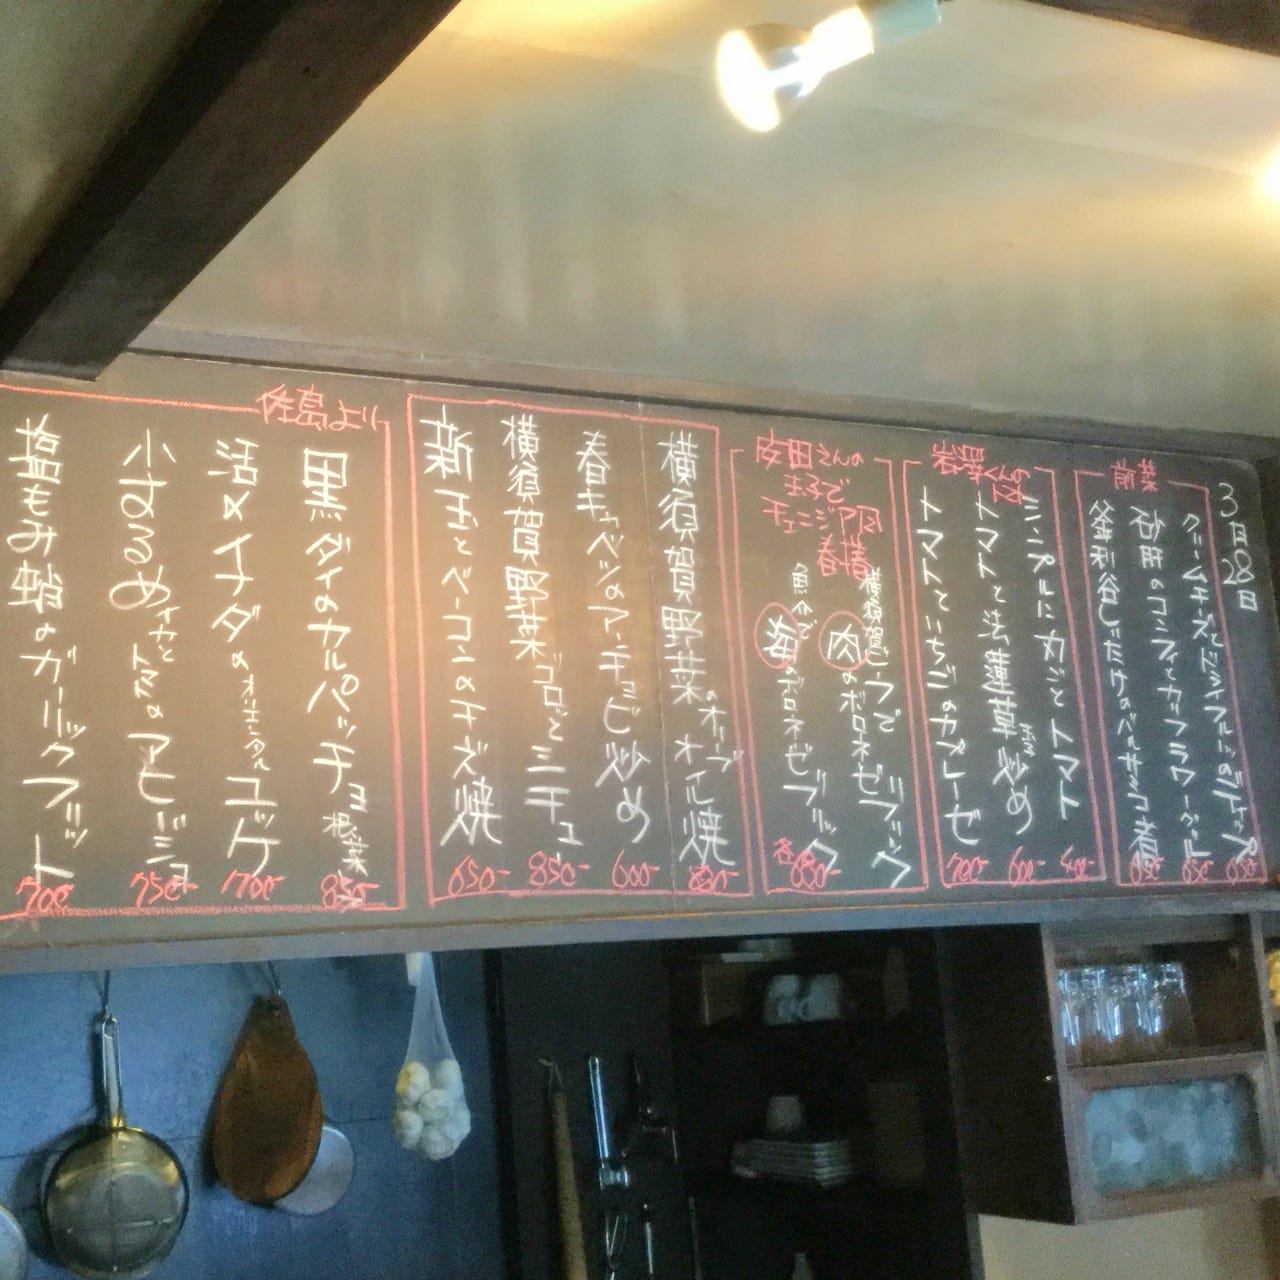 3月28日
前菜
クリームチーズとドライフルーツのディップ 650-
砂肝のコンフィとカリフラワーグリル 650-
釜利谷しいたけのバルサミコ煮 650-
岩澤くんのトマト
シンプルに丸ごとトマト 400-
トマトと法蓮草炒め 600-
トマトといちごのカプレーゼ 700-
安田さんの
玉子で
チュニジア風
春捲
横須賀ビーフで
肉のボロネゼブリック
魚介で
海のボロネゼブリック
各880-
横須賀野菜のオリーブオイル焼 880-
春キャベツのアンチョビ炒め 600-
横須賀野菜ゴロッとミニチュー 850-
新玉とベーコンのチーズ焼 650-
佐島より
黒ダイのカルパッチョ 根菜 850-
活〆イナダのオリエンタルユッケ 700-
小するめイカとトマトのアヒージョ 750-
塩もみ蛸のガーリックフリット 700